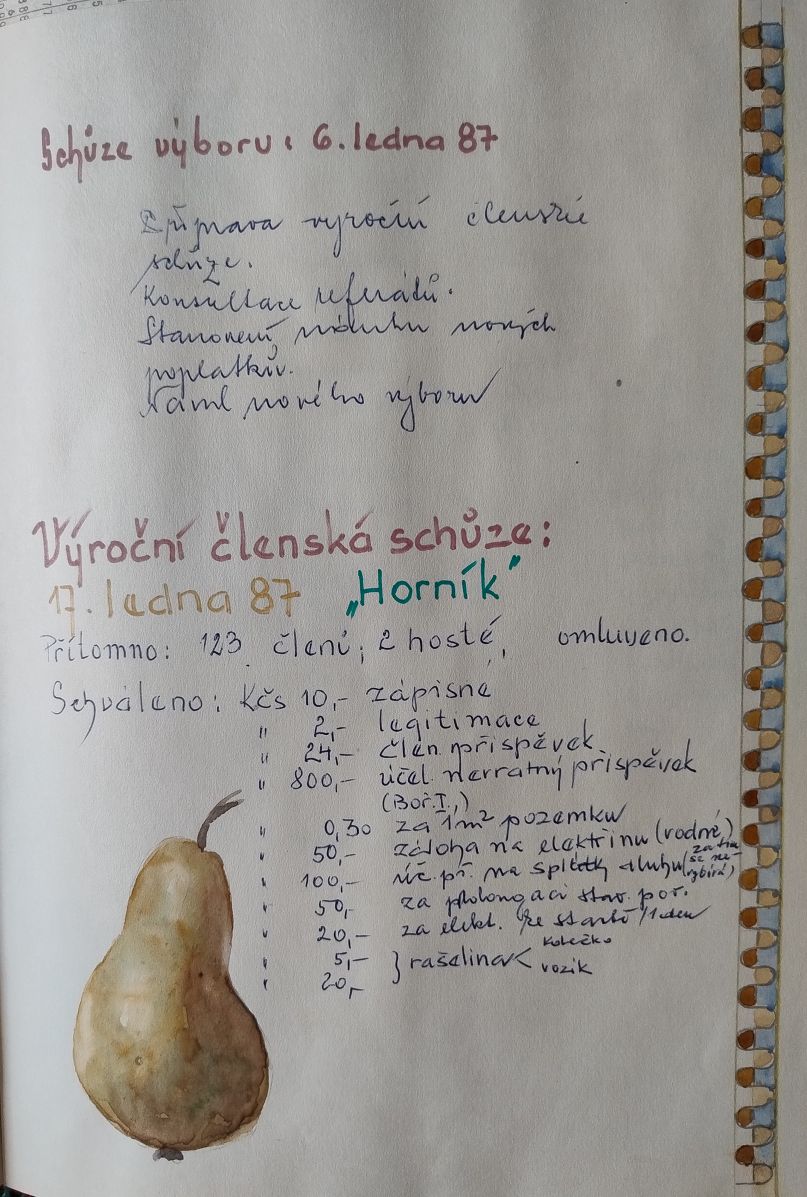 Schůze výboru: 6. ledna 87
Příprava výroční členské
schůze.
Konsultace referátů.
Stanovení, návrhu nových
poplatků.
Návrh nového výboru
Výroční členská schůze:
17. ledna 87 „Horník"
Přítomno: 123 členů; 2 hosté, omluveno.
Schváleno: Kčs 10,- zápisne
" 2,- legitimace
" 24,- člen. příspěvek
" 800,- účel. nevratný příspěvek
(Boř. I.,)
" 0,30 za 1m² pozemku
" 50,- záloha na elektřinu (vodné)
" 100,- úč. př. na splátky dluhu (zatím
se ne-
vybírá)
" 50,- za prolongaci stav. por.
" 20,- za elekt. ze staré /1 den
" 5,- } rašelina < kolečko
" 20,- vozík